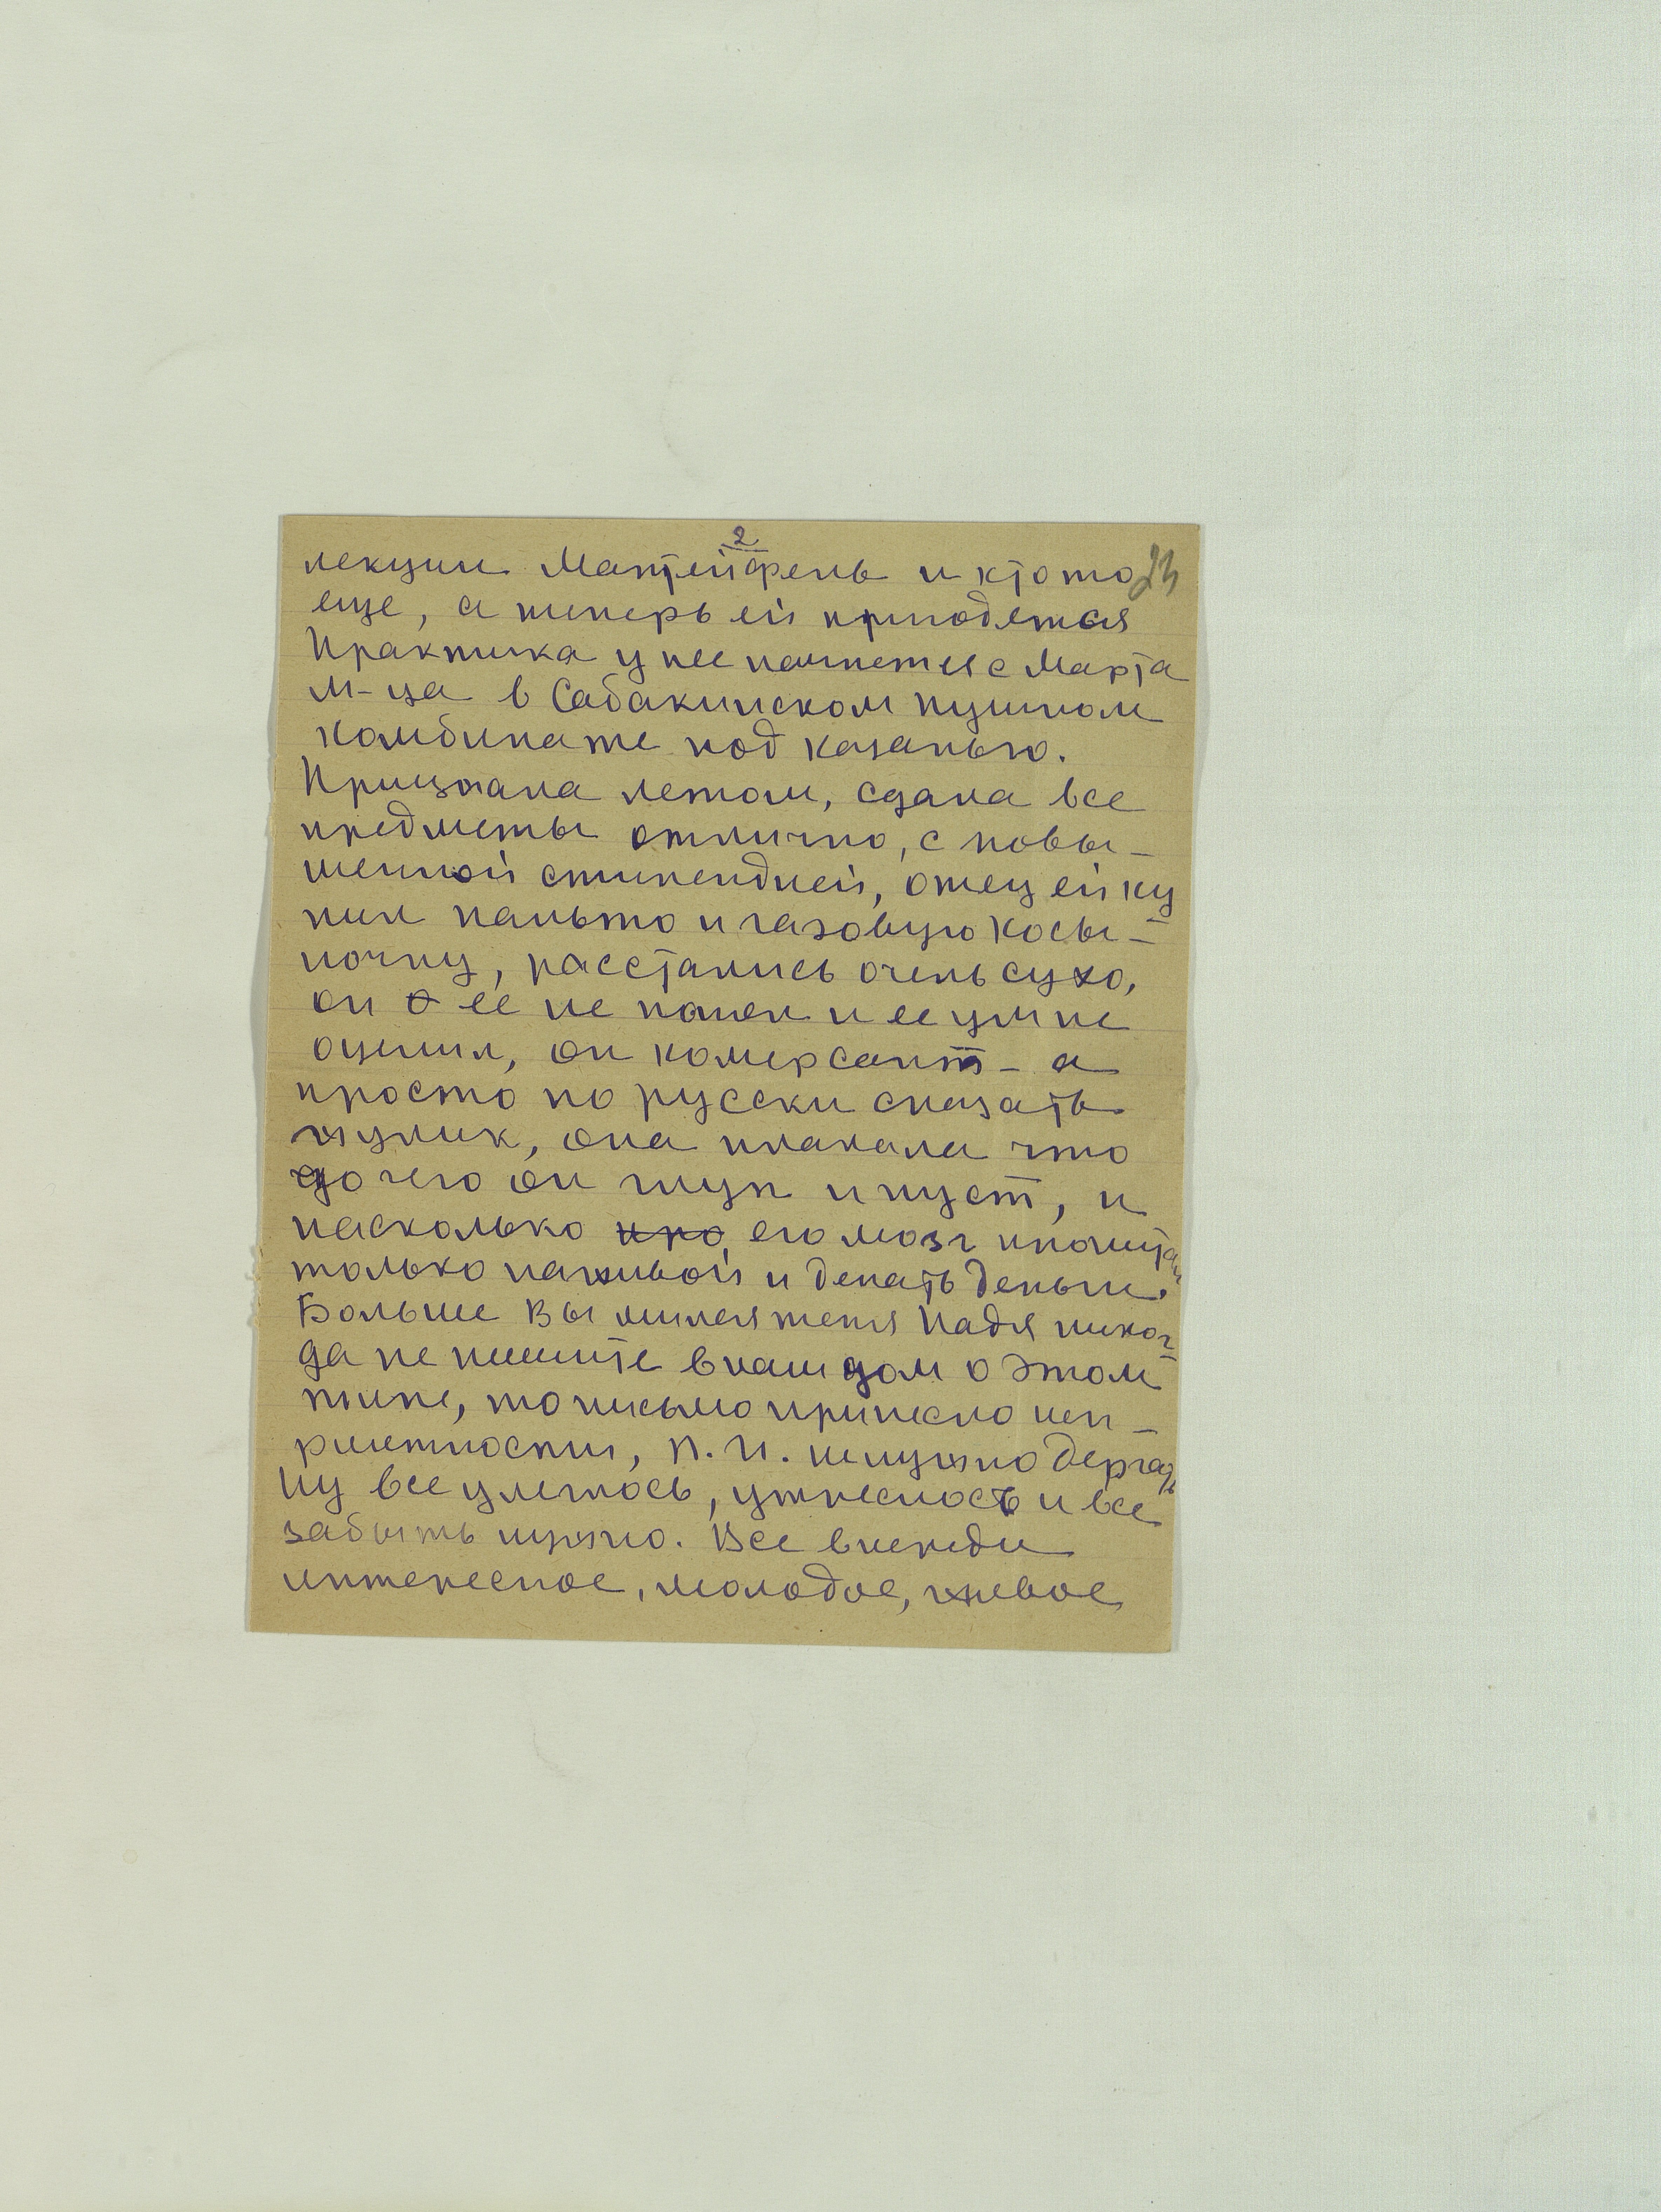 2
лекции Мантейфель и кто то 23
еще, а теперь ей пригодятся
Практика у нее начнется с Марта
м-ца в Сабакинском пушном
комбинате под казанью.
Приезжала летом, сдала все
предметы отлично, с повы-
шенной стипендией, отец ей ку
пил пальто и газовую косы-
ночку, расстались очень сухо,
он о ее не понял и ее ум не
оценил, он комерсант - а
просто по русски сказать
жулик, она плакала что
до чего он глуп и пуст, и
насколько про его мозг пропитан
только наживой и делать деньги.
Больше Вы милая тетя Надя никог-
да не пишите в наш дом о этом
типе, то письмо принесло неп-
риятности, П. И. дергать
Ну все улеглось, утряслось и все
забыть нужно. Все впереди
интересное, молодое, живое